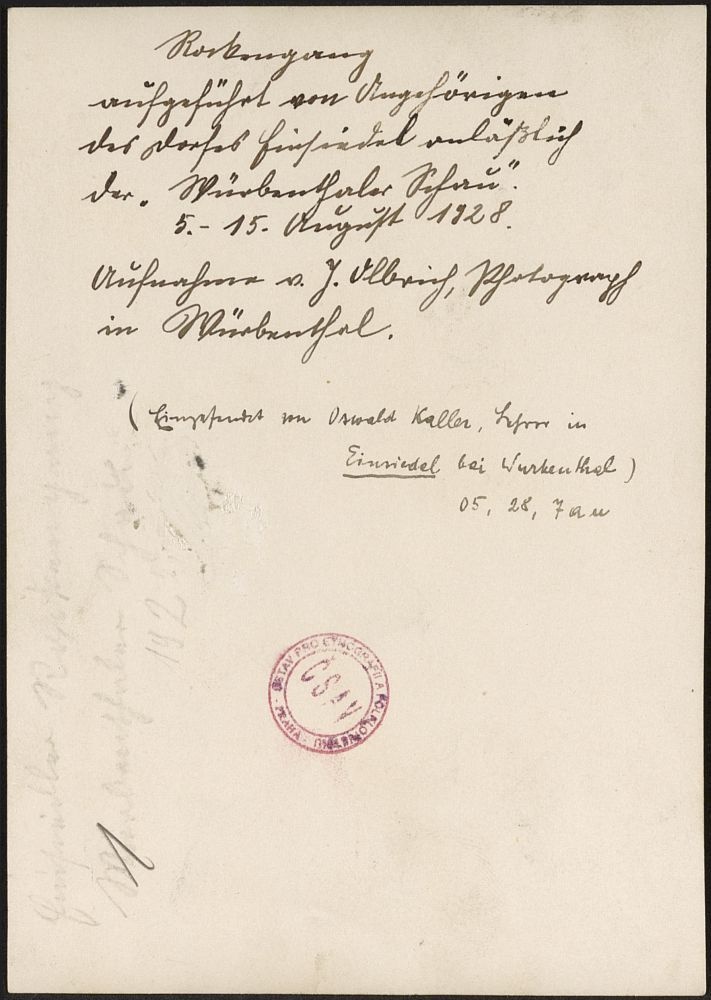 Rockengang
aufgeführt von Angehörigen
des Dorfes Einsiedel anläßlich
der „Würbenthaler Schau“.
5.- 15. August 1928.
Aufnahme v. J. Olbrich, Photograph
in Würbenthal.
(Eingesendet von Oswald Kaller, Lehrer in
Einsiedel bei Wurbenthal)
05, 28, 7
ÚSTAV PRO ETNOGRAFII A FOLKLORISTIKU · PRAHA ·
ČSAV
Einsiedler
Würbenthaler Schau
192